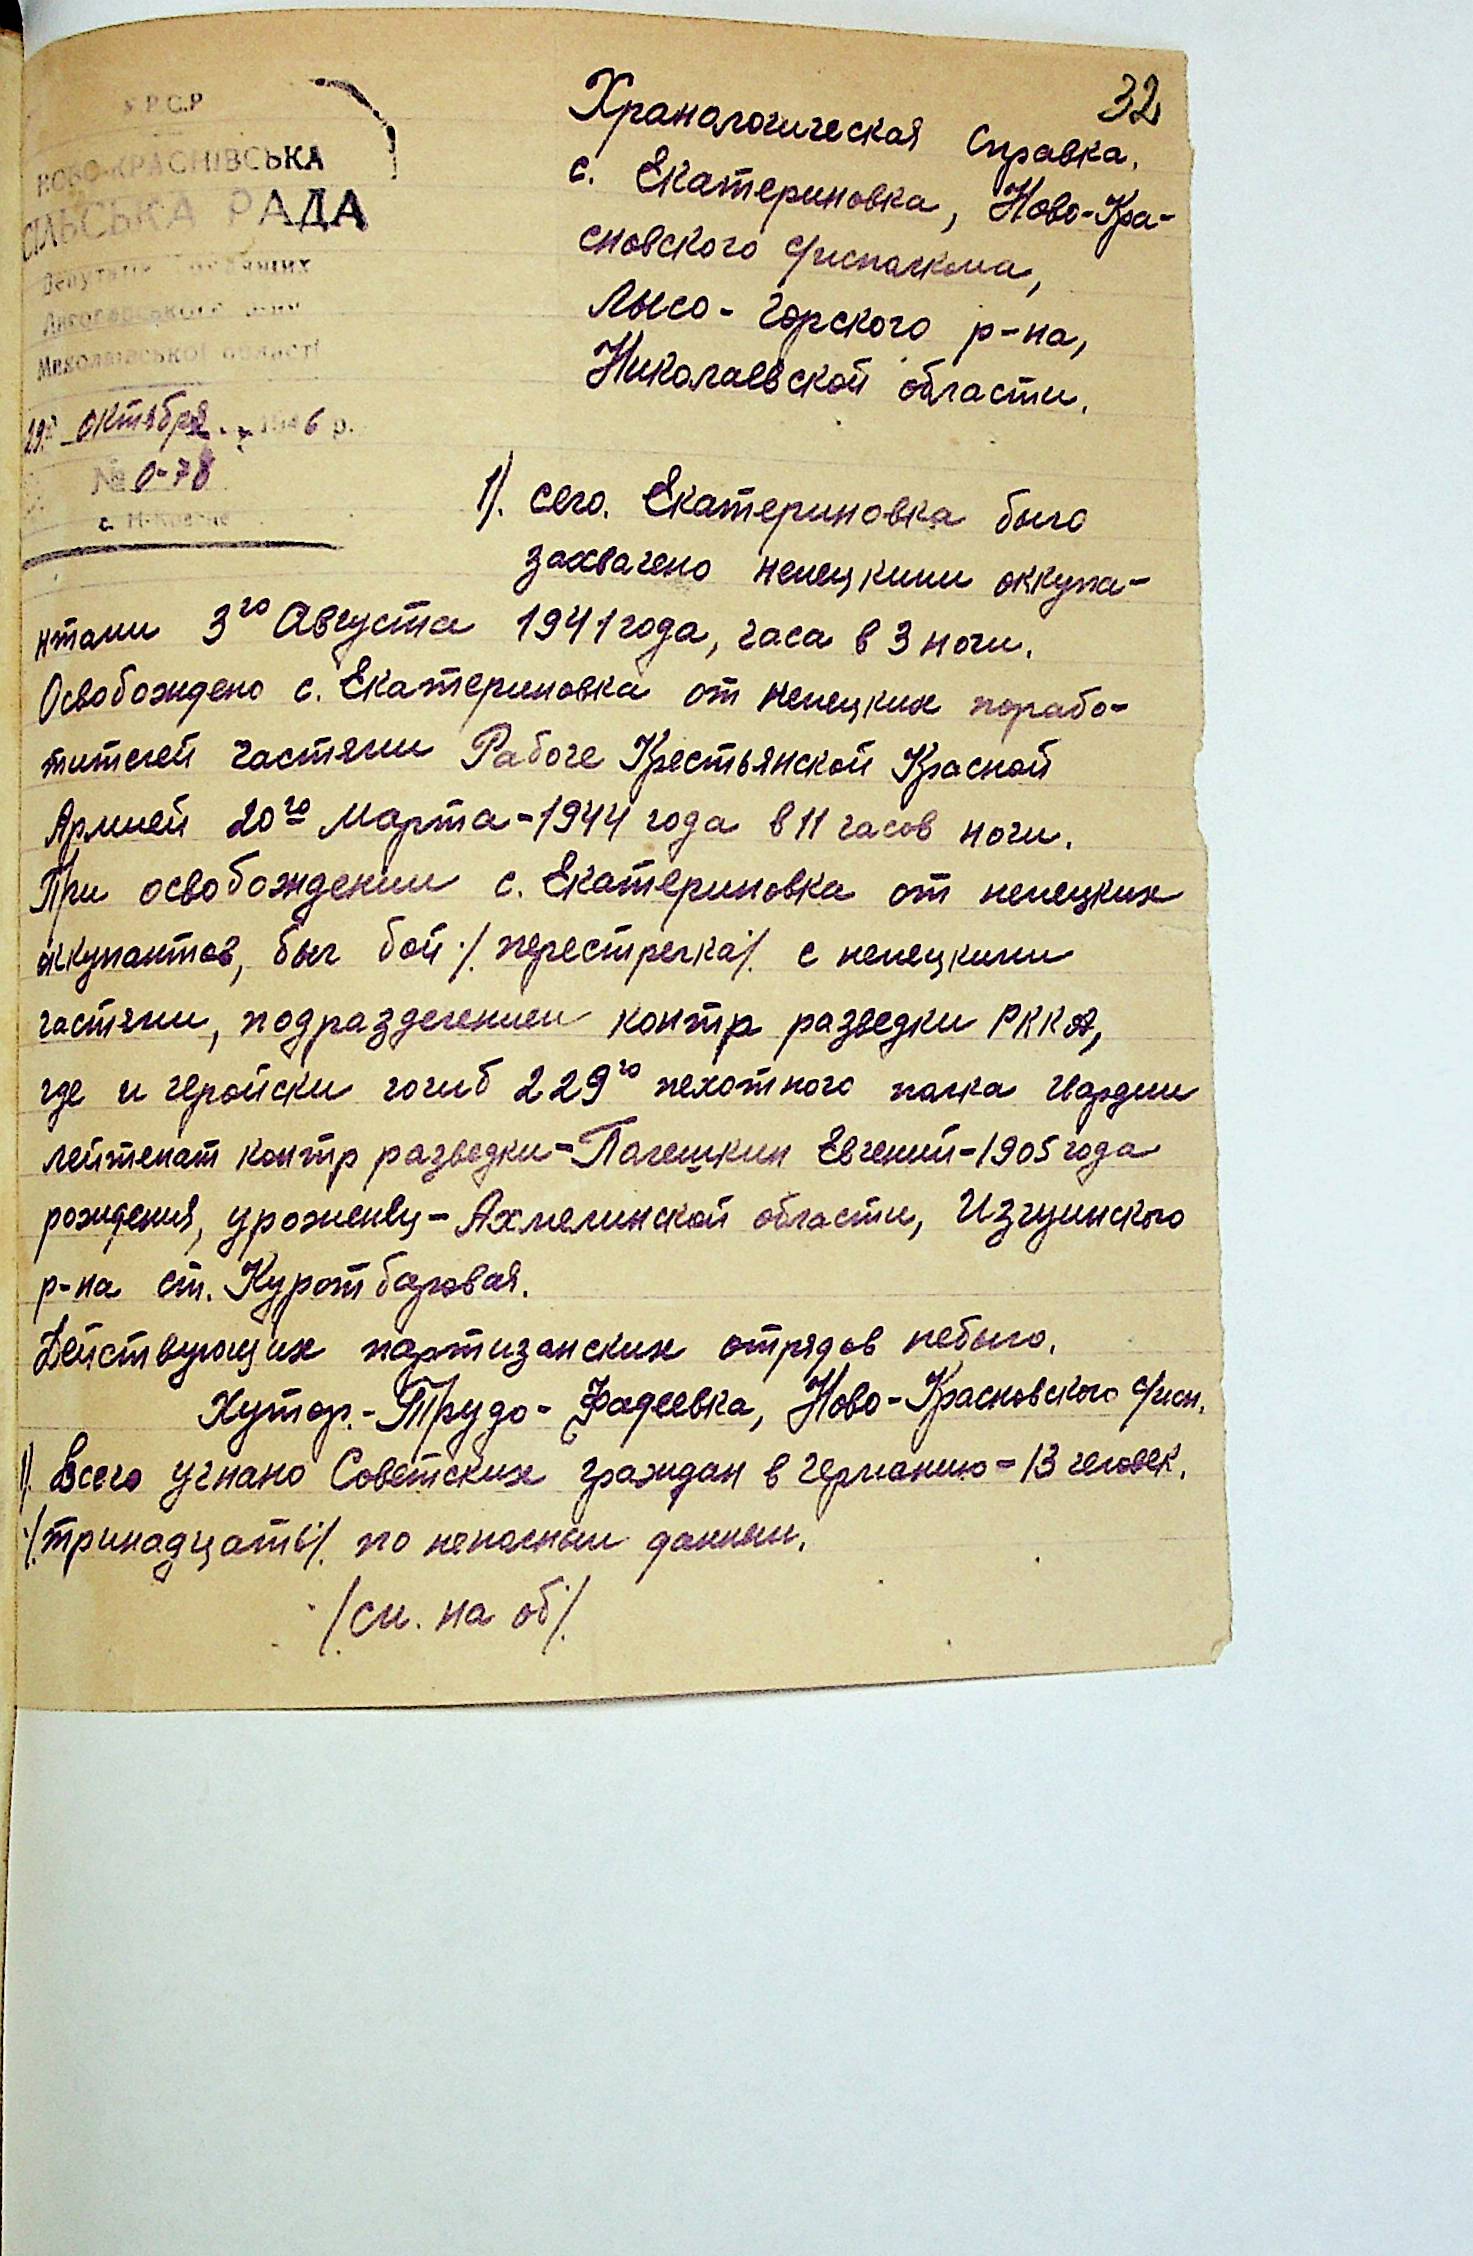 32
У.Р.С.Р
НОВО-КРАСНІВСЬКА
СІЛЬСЬКА РАДА
Депутатів трудящих
Миколаївської області
29го октября 1946 р.
№ 0-78
с. Н-Красне
Хранологическая Справка.
с. Екатериновка, Ново-Кра-
сновского с/исполкома,
Лысо-Горского р-на,
Николаевской области.
1). село. Екатериновка было
захвачено немецкими оккупа-
нтами 3го Августа 1941 года, часа в 3 ночи.
Освобождено с. Екатериновка от немецких порабо-
тителей частями Рабоче Крестьянской Красной
Армией 20го марта-1944 года в 11 часов ночи.
При освобождении с. Екатериновка от немецких
оккупантов, был бой ./. перестрелка ./. с немецкими
частями, подразделением контр разведки РККА,
где и геройски погиб 229го пехотного полка гвардии
лейтенат контр разведки-Палешкин Евгений-1905 года
рождения, уроженец-Ахмелинской области, Изгуинского
р-на ст. Куротбаровая.
Действующих партизанских отрядов небыло.
Хутор.-Трудо-Фадеевка, Ново-Красновского с/исп.
1). Всего угнано Советских граждан в Германию-13 человек.
./.тринадцать./. по неполным данным.
/см. на об/.